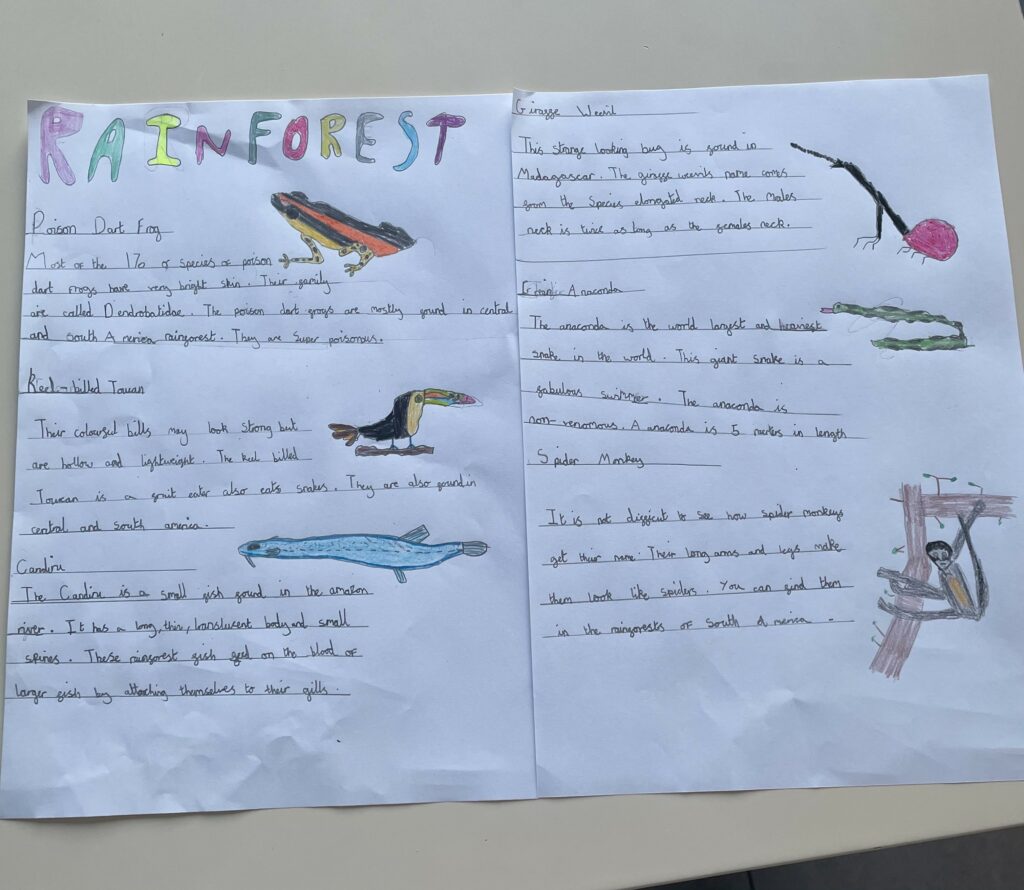 RAINFOREST
Poison Dart Frog
Most of the 170 of species of poison
dart frogs have very bright skin. Their family
are called Dendrobatidae. The poison dart frogs are mostly found in central
and South America rainforest. They are super poisonous.
Keel-billed Toucan
Their colourful bills may look strong but
are hollow and lightweight. The keel billed
Toucan is a fruit eater also eats snakes. They are also found in
central and south america.
Candiru
The Candiru is a small fish found in the amazon
river. It has a long, thin, translucent body and small
spines. These rainforest fish feed on the blood of
larger fish by attaching themselves to their gills.
Giraffe Weevil
This strange looking bug is found in
Madagascar. The giraffe weevils name comes
from the species elongated neck. The males
neck is twice as long as the females neck.
Anaconda
The anaconda is the world largest and heaviest
snake in the world. This giant snake is a
fabulous swimmer. The anaconda is
non-venomous. A anaconda is 5 meters in length
Spider Monkey
It is not difficult to see how spider monkeys
get their name. Their long arms and legs make
them look like spiders. You can find them
in the rainforests of South America.